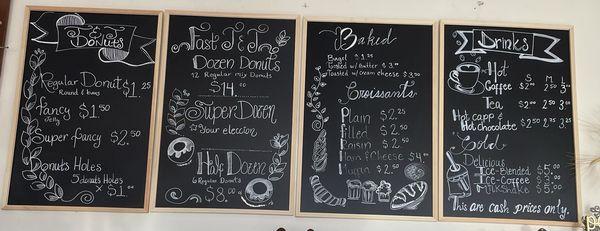 J & J
DONUTS
Regular Donut $1.25
Round & bars
fancy $1.50
Jelly
Super fancy $2.50
Donuts Holes
5 donuts Holes
× $1.00
Fast J & J
Dozen Donuts
12 Regular mix Donuts
$14.00
Super Dozen
Your eleccion
Half Dozen
6 Regular Donuts
$8.00
Baked
Bagel $1.25
Toasted w/ Butter $3.00
Toasted w/ Cream cheese $3.50
Croissants
Plain $2.25
filled $2.50
Raisin $2.50
Ham & Cheese $4.00
$2.50
Drinks
Hot S M L
Coffee $2.00 2.50 3.00
Tea $2.00 2.50 3.00
Hot capp &
Hot chocolate $2.50 2.75 3.25
Cold
Delicious
Ice-Blended $5.00
Ice-Coffee $3.00
Milkshake $5.00
This are cash prices only.